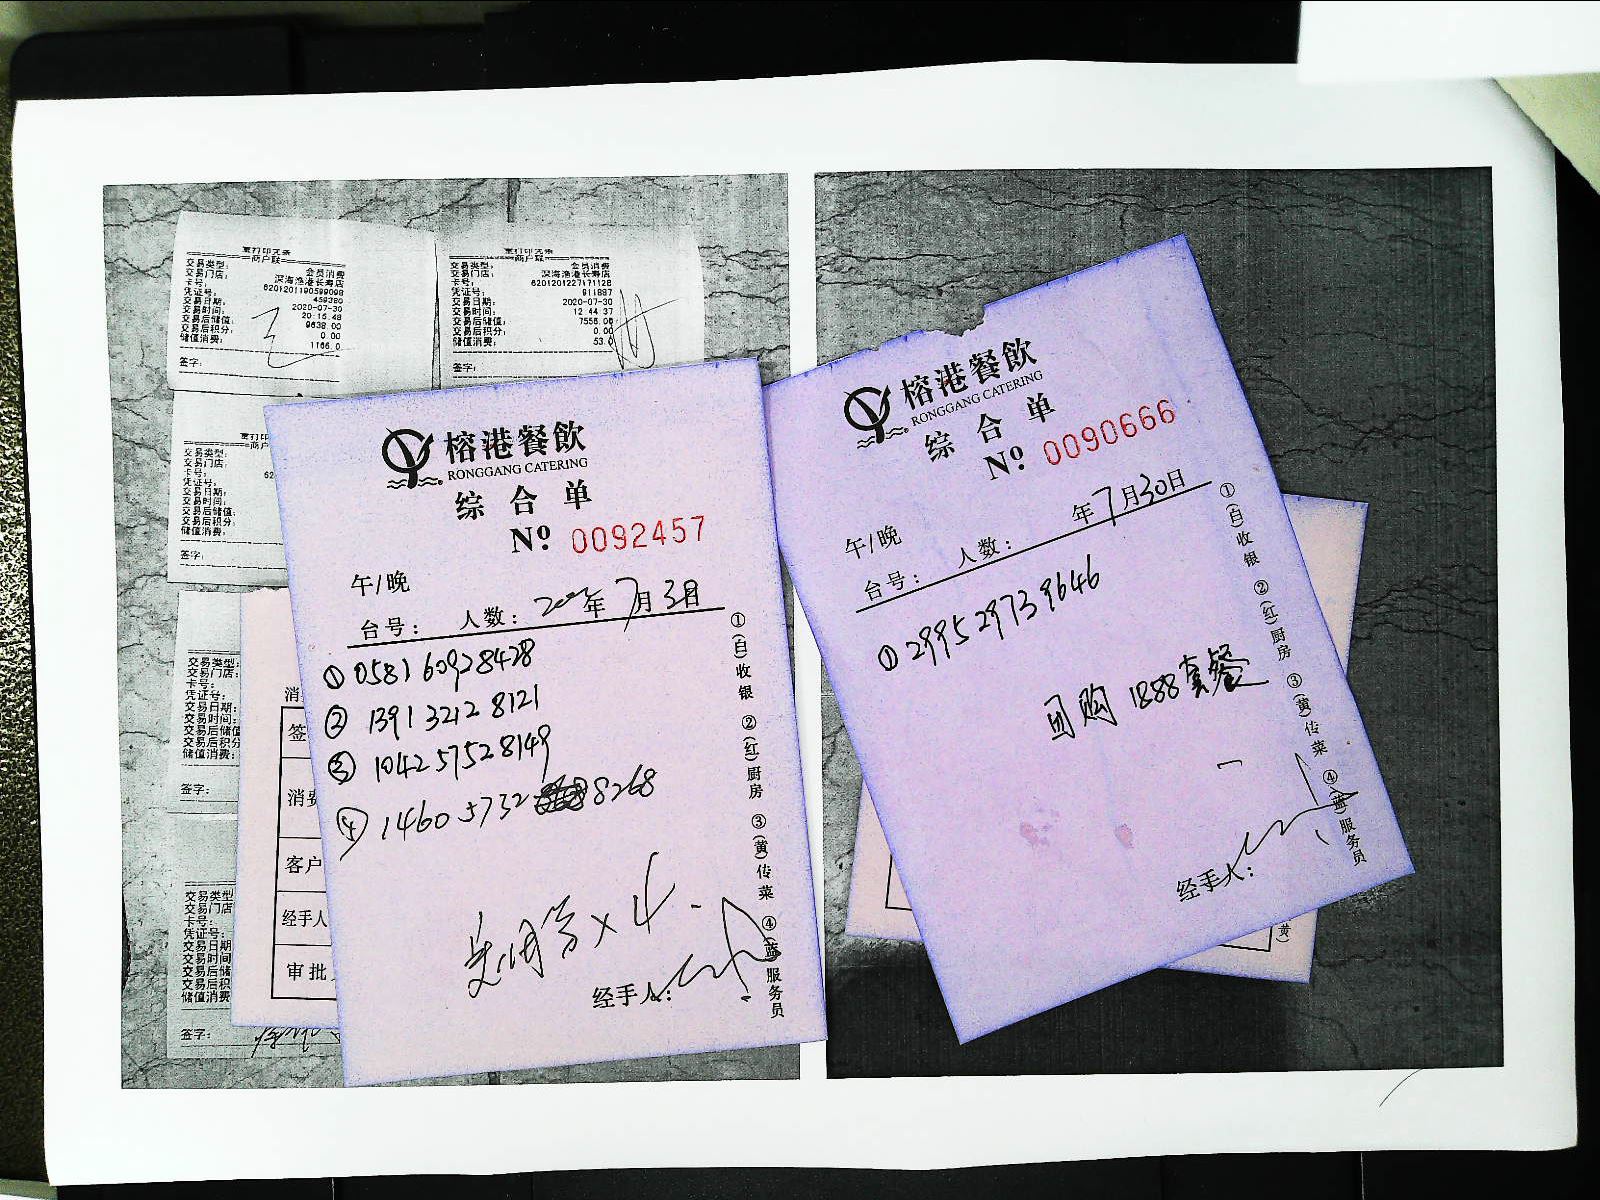 重打印凭条
商户联
交易类型: 会员消费
交易门店: 深海渔港长寿店
卡号: 6201201190599098
凭证号: 459380
交易日期: 2020-07-30
交易时间: 20:15:48
交易后储值: 9638.00
交易后积分: 0.00
储值消费: 1166.0
签字:
重打印凭条
商户联
交易类型: 会员消费
交易门店: 深海渔港长寿店
卡号: 6201201227171128
凭证号: 911887
交易日期: 2020-07-30
交易时间: 12:44:37
交易后储值: 7556.00
交易后积分: 0.00
储值消费: 53.0
签字:
重打印凭
商户联
交易类型:
交易门店:
卡号: 62
凭证号:
交易日期:
交易时间:
交易后储值:
交易后积分:
储值消费:
签字:
交易类型:
交易门店:
卡号:
凭证号:
交易日期:
交易时间:
交易后储值
交易后积分
储值消费:
签字:
交易类型
交易门店
卡号:
凭证号:
交易日期
交易时间
交易后储
交易后积
储值消费
签字:
消
签
消费
客户
经手人
审批
榕港餐飲
RONGGANG CATERING
综合单
Nº 0092457
午/晚
台号: 人数: 年7月3日
① 0581 6092 8428
② 1391 3212 8121
③ 1042 5752 8149
④ 1460 5732 8268
×4
经手人:
①(白)收银 ②(红)厨房 ③(黄)传菜 ④(蓝)服务员
榕港餐飲
RONGGANG CATERING
综合单
Nº 0090666
年7月30日
午/晚
台号: 人数:
① 2995 2973 9646
团购 1888套餐
经手人:
①(白)收银 ②(红)厨房 ③(黄)传菜 ④(蓝)服务员
(黄)